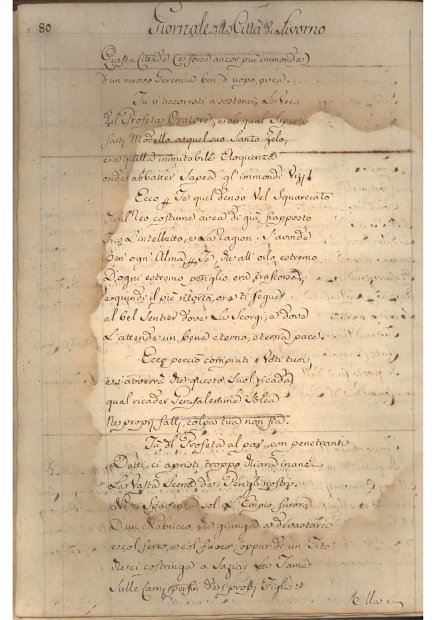 80 Giornale della Città di Livorno
Questa Cittade (e forse ancor più immonda)
d'un nuovo Geremia ben d'uopo avea.
Tu t'accoresti a sostener
Profeta Oratore, e
farti Modello a quel suo Santo Zelo,
e a quella inimitabile Eloquenza
onde abbatter Sapea gl'immondi Vizj
Ecco Te quel denso Vel Squarciato
costume avea di già frapposto
L'intelletto, e La Ragion.
Ben ogn'Alma Te, all'orlo estremo
D'ogni estremo periglio era
e quindi il piè ritorto, ora ti Segue
al bel Sentier dove La Scorgi, e dove
L'attende un bene eterno, eterna pace.
Ecco perciò compiuti i Voti tuoi
e s'avverrà che questo Suol ricada
qual ricader Gerusalemme Solea
Ne' proprj falli, colpa tua non fia.
Tu del Profeta al par, con penetranti
Detti, ci apristi, troppo
La Vasta Scena de' i Perigli nostri.
Nè ci Spaventa sol L'Empio furore
D'un Nabucco, che giunga a devastare
e col ferro, e col fuoco, oppur di un Tito
ci costringa a Saziar La Fame
Sulle Carni perfin de' proprj Figli:
Ella